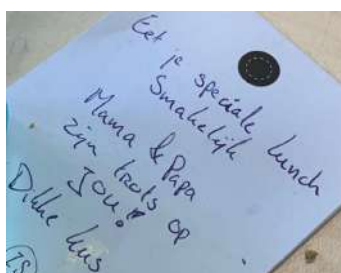 Eet je speciale lunch
Smakelijk
Mama & Papa
zijn trots op
Jou!
Dikke kus